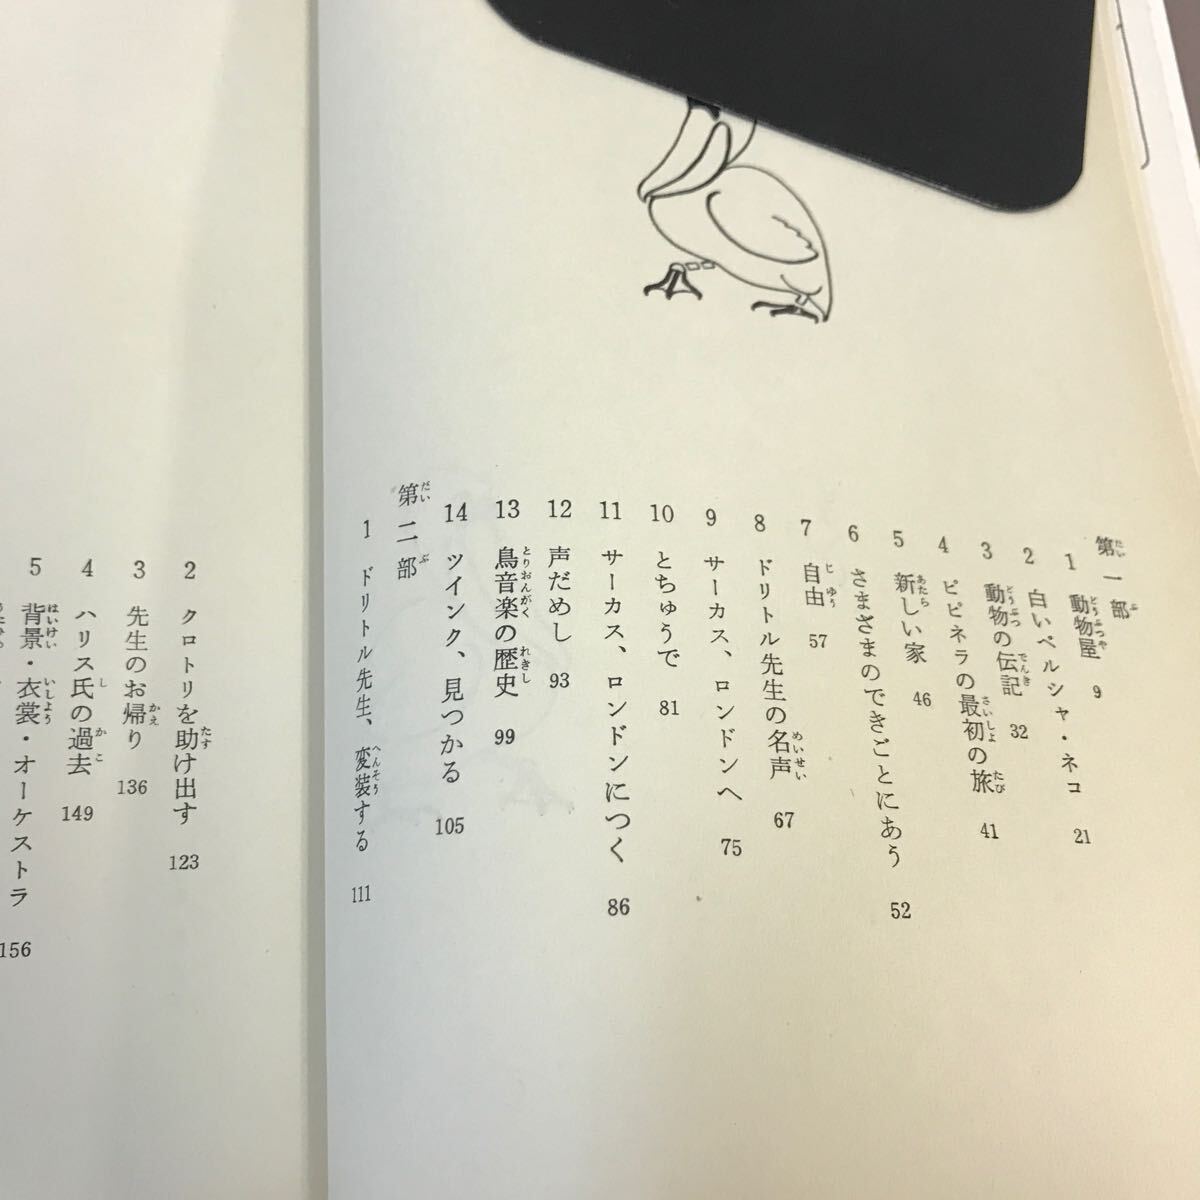 第一部
1 動物屋 9
2 白いペルシャ・ネコ 21
3 動物の伝記 32
4 ピピネラの最初の旅 41
5 新しい家 46
6 さまざまのできごとにあう 52
7 自由 57
8 ドリトル先生の名声 67
9 サーカス、ロンドンへ 75
10 とちゅうで 81
11 サーカス、ロンドンにつく 86
12 声だめし 93
13 鳥音楽の歴史 99
14 ツインク、見つかる 105
第二部
1 ドリトル先生、変装する 111
2 クロトリを助け出す 123
3 先生のお帰り 136
4 ハリス氏の過去 149
5 背景・衣裳・オーケストラ 156